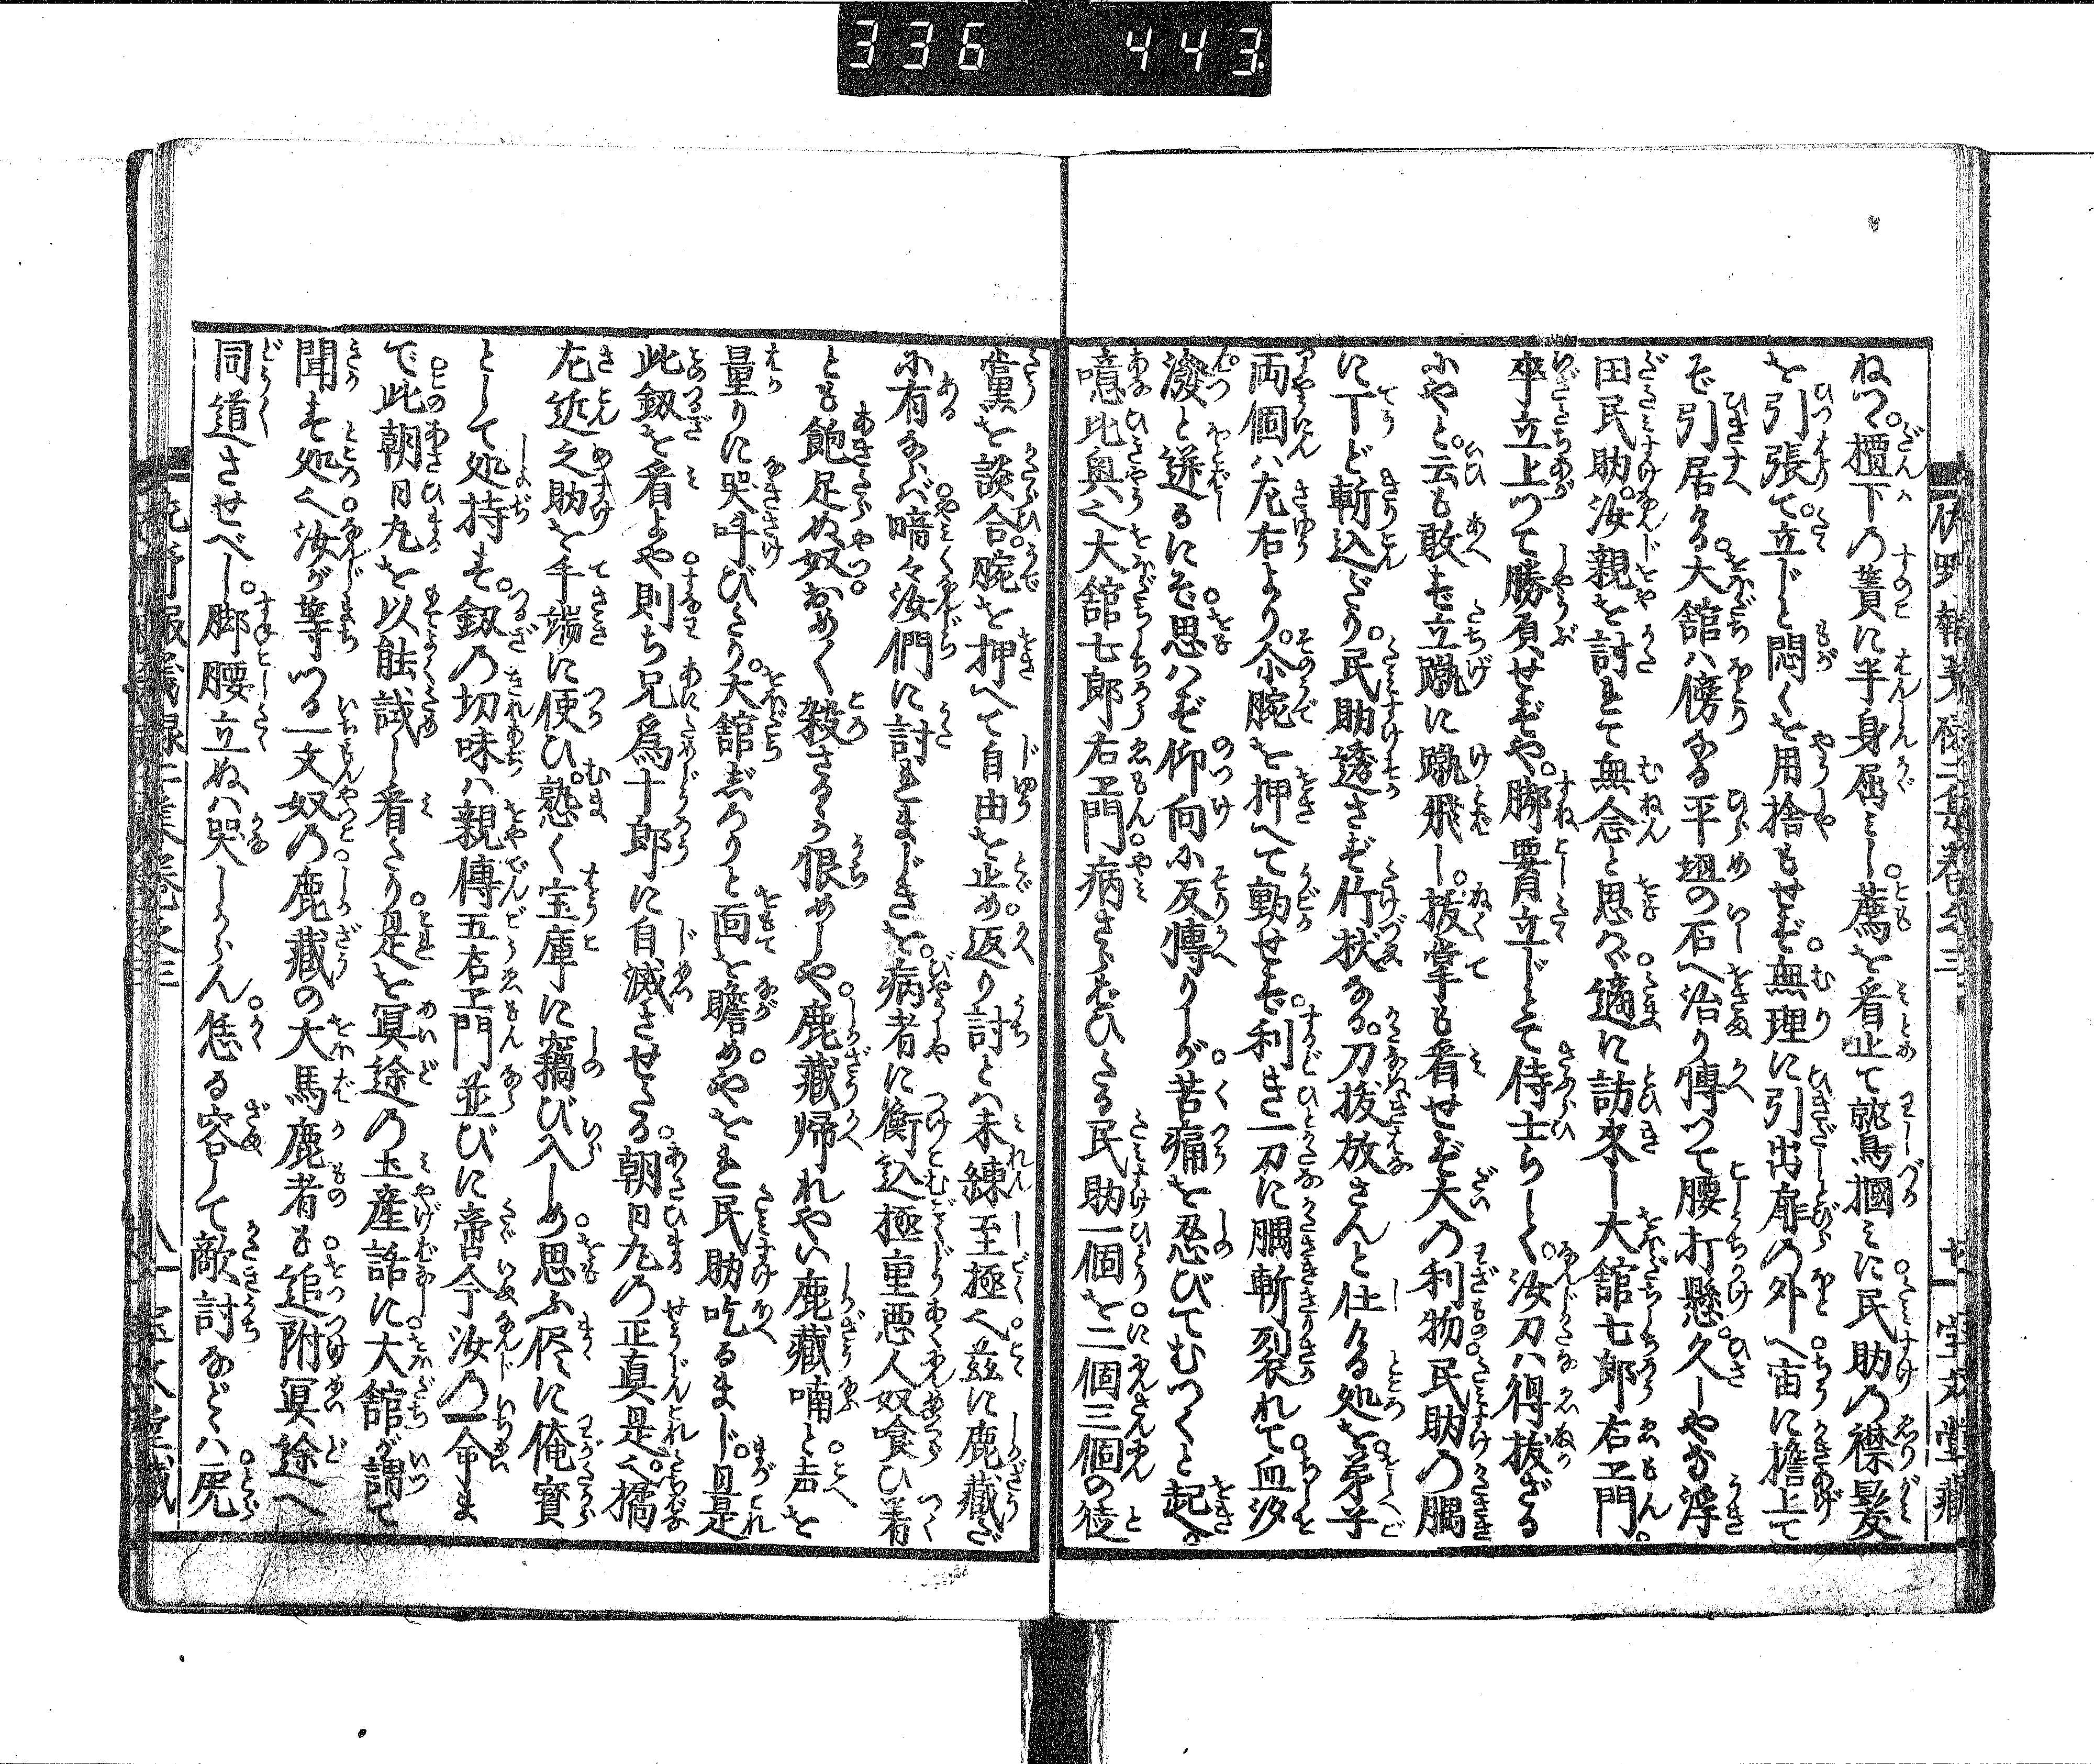 336 443
ねつ。檀下の簀に半身屈ミし。薦を看止て鷲摑ミに民助の襟髪
を引張て。立じと悶くを用捨もせず。無理に引出扉の外へ宙に擔上て
ぞ引居ける。大舘ハ傍なる平坦の石へ治り慱つて腰打懸。久しやな浮
田民助。汝親を討れて無念と思ハヾ適に訪来し大舘七郎右エ門。
卒立上つて勝負せずや。脚腰立ずとて侍士らしく。汝刀ハ得抜ざる
にやと。云も敢ず立蹴に蹴飛し。抜掌も看せず大の利物民助の腸
に丁ど斬込だり。民助透さず竹杖なる。刀抜放さんと仕ける処を。弟子
両個ハ左右より。尓腕を押へて動せず。利き一刀に腸斬裂れて血汐
潑と迸るにぞ。思ハず仰向に反慱りしが。苦痛を忍びてむつくと起。
噫比奥く大舘七郎右エ門。病さらばひたる民助一個を。二個三個の徒
黨を談合。腕を押へて自由を止め。返り討とハ未練至極く。茲に鹿藏だ
に有ならバ。暗々汝們に討れまじきを。病者に衝込極重悪人奴。喰ひ着
とも飽足ぬ奴。おめ〱殺さるゝか恨めしや。鹿藏帰れやい鹿藏喃と。声を
量りに哭叫びたり。大舘ぎろりと面を瞻め。やをれ民助吃るまじ。且是
此釼を看よや。則ち兄爲十郎に自滅させたる。朝日丸の正真是く。橘
左近之助を手端に使ひ。㷉く宝庫に竊び入しめ。思ふ侭に俺寳
として処持す。釼の切味ハ親傳五右エ門並びに啻今汝の一命ま
で。此朝日丸を以能試し看たり。是を冥途の土産話に。大舘が謂て
聞す処く。汝が等つる一文奴の。鹿藏の大馬鹿者も。追附冥途へ
同道させべし。脚腰立ぬハ哭しからん。恁る容して敵討などゝハ。尻